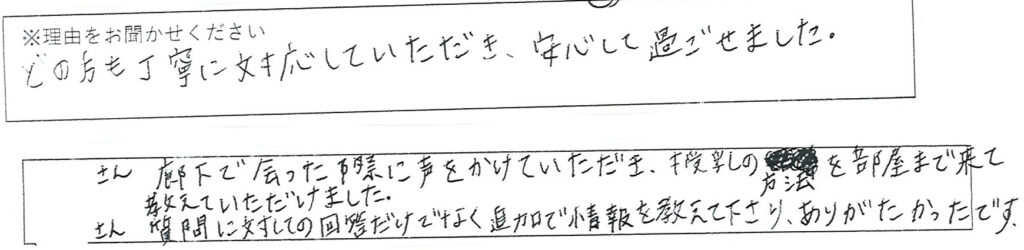 ※理由をお聞かせください
どの方も丁寧に対応していただき、安心して過ごせました。
さん 廊下で会った際に声をかけていただき、授乳の方法を部屋まで来て
教えていただけました。
さん 質問に対しての回答だけでなく追加で情報を教えて下さり、ありがたかったです。